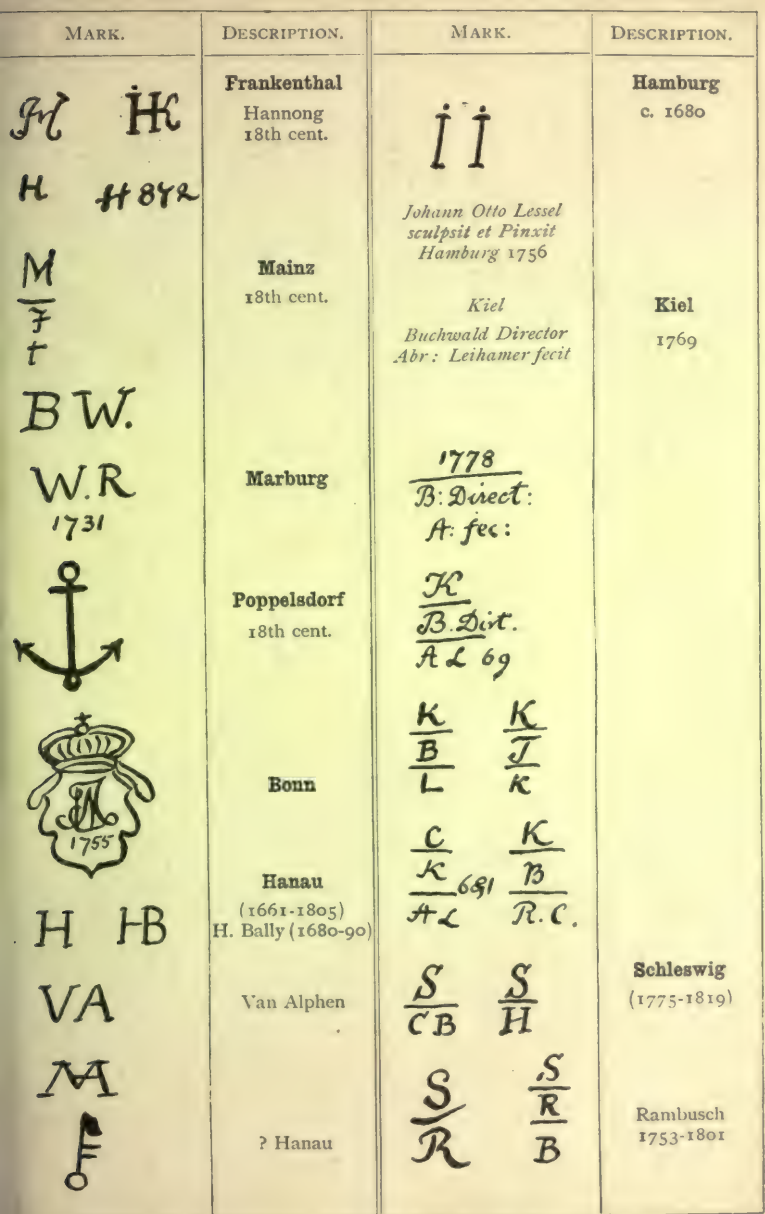 MARK. DESCRIPTION. MARK. DESCRIPTION.
Frankenthal
Hannong
18th cent.
H HK
H H 872
M
F
t
Mainz
18th cent.
B W.
W.R
1731
Marburg
Poppelsdorf
18th cent.
1755
Bonn
Hanau
(1661-1805)
H. Bally (1680-90)
H HB
VA
Van Alphen
? Hanau
Hamburg
c. 1680
i i
Johann Otto Lessel
sculpsit et Pinxit
Hamburg 1756
Kiel
Buchwald Director
Abr: Leihamer fecit
Kiel
1769
1778
B: Direct:
A: fec:
K
B. Dirt.
A L 69
K K
B J
L K
C K
K B
A L R. C.
Schleswig
(1775-1819)
S S
C B H
S S
R R
B
Rambusch
1753-1801